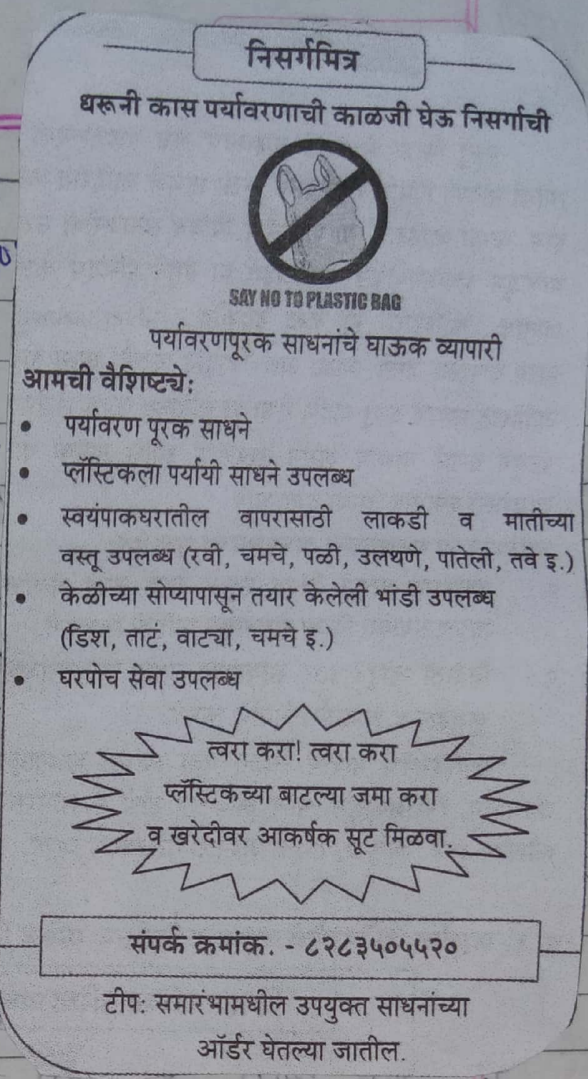 निसर्गमित्र
धरूनी कास पर्यावरणाची काळजी घेऊ निसर्गाची
SAY NO TO PLASTIC BAG
पर्यावरणपूरक साधनांचे घाऊक व्यापारी
आमची वैशिष्ट्ये:
• पर्यावरण पूरक साधने
• प्लॅस्टिकला पर्यायी साधने उपलब्ध
• स्वयंपाकघरातील वापरासाठी लाकडी व मातीच्या
वस्तू उपलब्ध (रवी, चमचे, पळी, उलथणे, पातेली, तवे इ.)
• केळीच्या सोप्यापासून तयार केलेली भांडी उपलब्ध
(डिश, ताट, वाट्या, चमचे इ.)
• घरपोच सेवा उपलब्ध
त्वरा करा! त्वरा करा
प्लॅस्टिकच्या बाटल्या जमा करा
व खरेदीवर आकर्षक सूट मिळवा.
संपर्क क्रमांक. - ८२८३५०५५२०
टीप: समारंभामधील उपयुक्त साधनांच्या
ऑर्डर घेतल्या जातील.